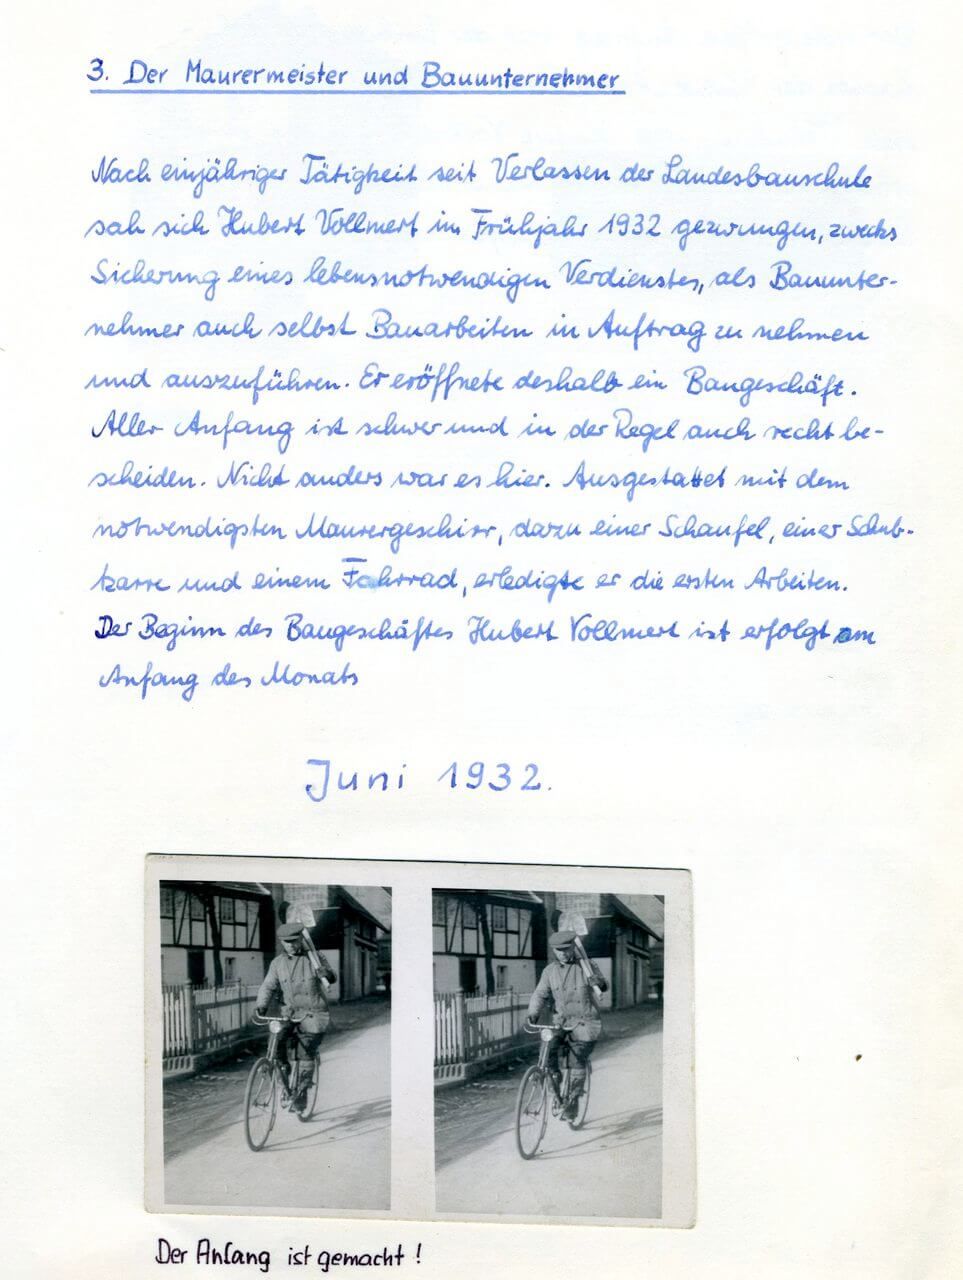 3. Der Maurermeister und Bauunternehmer
Nach einjähriger Tätigkeit seit Verlassen der Landesbauschule
sah sich Hubert Vollmert im Frühjahr 1932 gezwungen, zwecks
Sicherung eines lebensnotwendigen Verdienstes, als Bauunter-
nehmer auch selbst Bauarbeiten in Auftrag zu nehmen
und auszuführen. Er eröffnete deshalb ein Baugeschäft.
Aller Anfang ist schwer und in der Regel auch recht be-
scheiden. Nicht anders war es hier. Ausgestattet mit dem
notwendigsten Maurergeschirr, dazu einer Schaufel, einer Schub-
karre und einem Fahrrad, erledigte er die ersten Arbeiten.
Der Beginn des Baugeschäftes Hubert Vollmert ist erfolgt am
Anfang des Monats
Juni 1932.
Der Anfang ist gemacht!